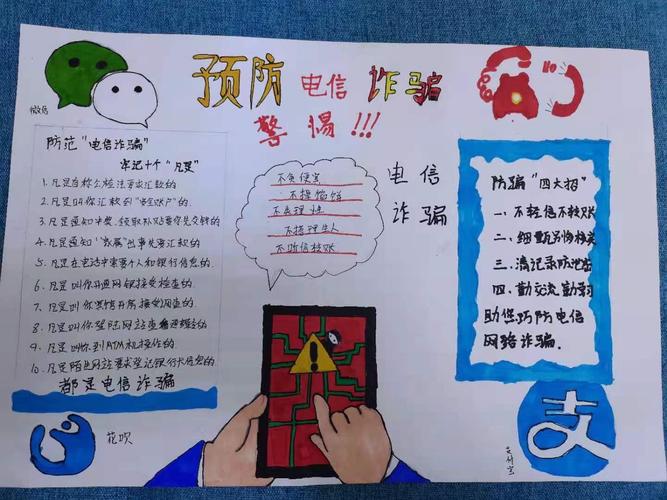 预防电信诈骗
警惕!!!
微信
防范"电信诈骗"
牢记十个"凡是"
1. 凡是自称公检法要求汇款的.
2. 凡是叫你汇款到"安全账户"的.
3. 凡是通知中奖、领取补贴要你先交钱的
4. 凡是通知"家属"出事先要汇款的.
5. 凡是在电话中索要个人和银行信息的.
6. 凡是叫你开通网银接受检查的.
7. 凡是叫你宾馆开房接受调查的.
8. 凡是叫你登陆网站查看通缉令的
9. 凡是叫你到ATM机操作的.
10. 凡是陌生网站要求登记银行卡信息的.
都是电信诈骗
不贪便宜
不理陌生人
电信
诈骗
防骗"四大招"
一、不轻信不转账
二、细甄别多核实
三、清记录防泄密
四、勤交流勤
助您巧防电信
网络诈骗.
支
支付宝